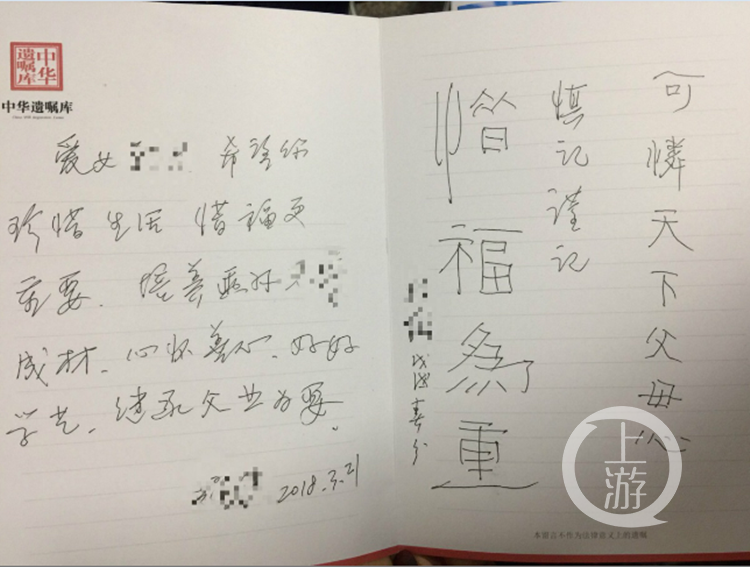 中华
遗嘱库
中华遗嘱库
爱女 希望你
珍惜生活 惜福更
重要. 培养
成材. 心怀善心. 好好
学艺. 继承父业为要.
2018.3.21
可憐天下父母心
慎记谨记
惜福為重
戊戌春分
本留言不作为法律意义上的遗嘱
上游